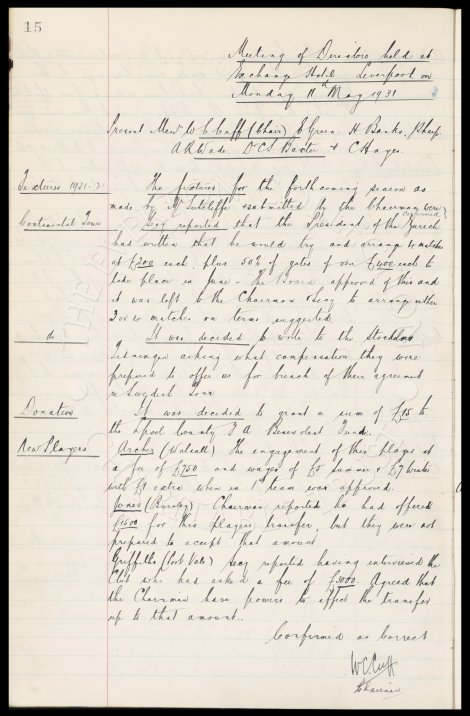 15
Meeting of Directors held at
Exchange Hotel Liverpool on
Monday 11th May 1931
Present Messrs W.C. Cuff (Chair) E Green. H Banks.
A R Wade. Dr C.S. Baxter & C Hayes.
Fixtures 1931-2 The fixtures for the forthcoming season as
made by Mr Sutcliffe & submitted by the Chairman were
confirmed
Continental Tour Secy reported that the President of the Zurich
had written that he would try and arrange 4 matches
at £200 each plus 50% of gates if over £400 each to
take place in June. The Board approved of this and
it was left to the Chairman & Secy to arrange either
3 or 4 matches on terms suggested.
do It was decided to write to the Stockholm
asking what compensation they were
prepared to offer us for breach of their agreement
re Swedish Tour
Donation It was decided to grant a sum of £15 to
the L'pool County F A Benevolent Fund.
New Players Archer (Walsall) The engagement of this player at
a fee of £750 and wages of £5 summer & £7 winter
with £1 extra when in 1st team was approved.
Jones (Burnley) Chairman reported he had offered
£1500 for this players transfer, but they were not
prepared to accept that amount
Griffiths (Port Vale) Secy reported having interviewed the
Club who had asked a fee of £3000 Agreed that
the Chairman have powers to effect the transfer
up to that amount..
Confirmed as Correct
W C Cuff
Chairman